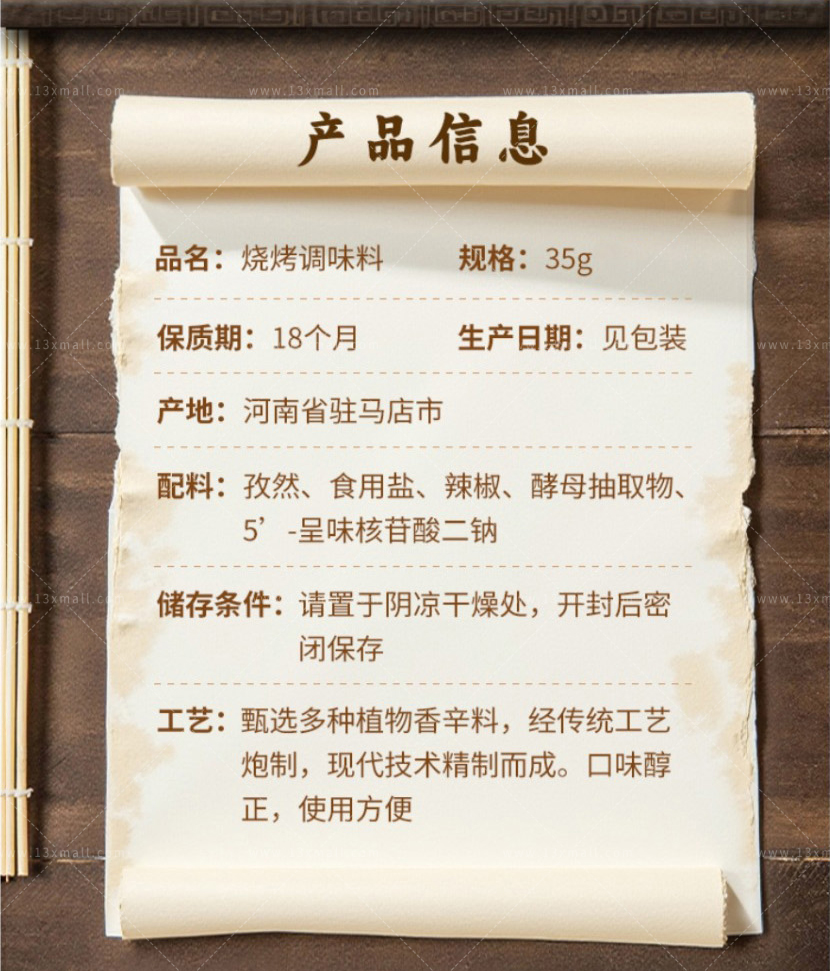 产品信息
品名：烧烤调味料 规格：35g
保质期：18个月 生产日期：见包装
产地：河南省驻马店市
配料：孜然、食用盐、辣椒、酵母抽取物、
5’-呈味核苷酸二钠
储存条件：请置于阴凉干燥处，开封后密
闭保存
工艺：甄选多种植物香辛料，经传统工艺
炮制，现代技术精制而成。口味醇
正，使用方便
www.13xmall.com